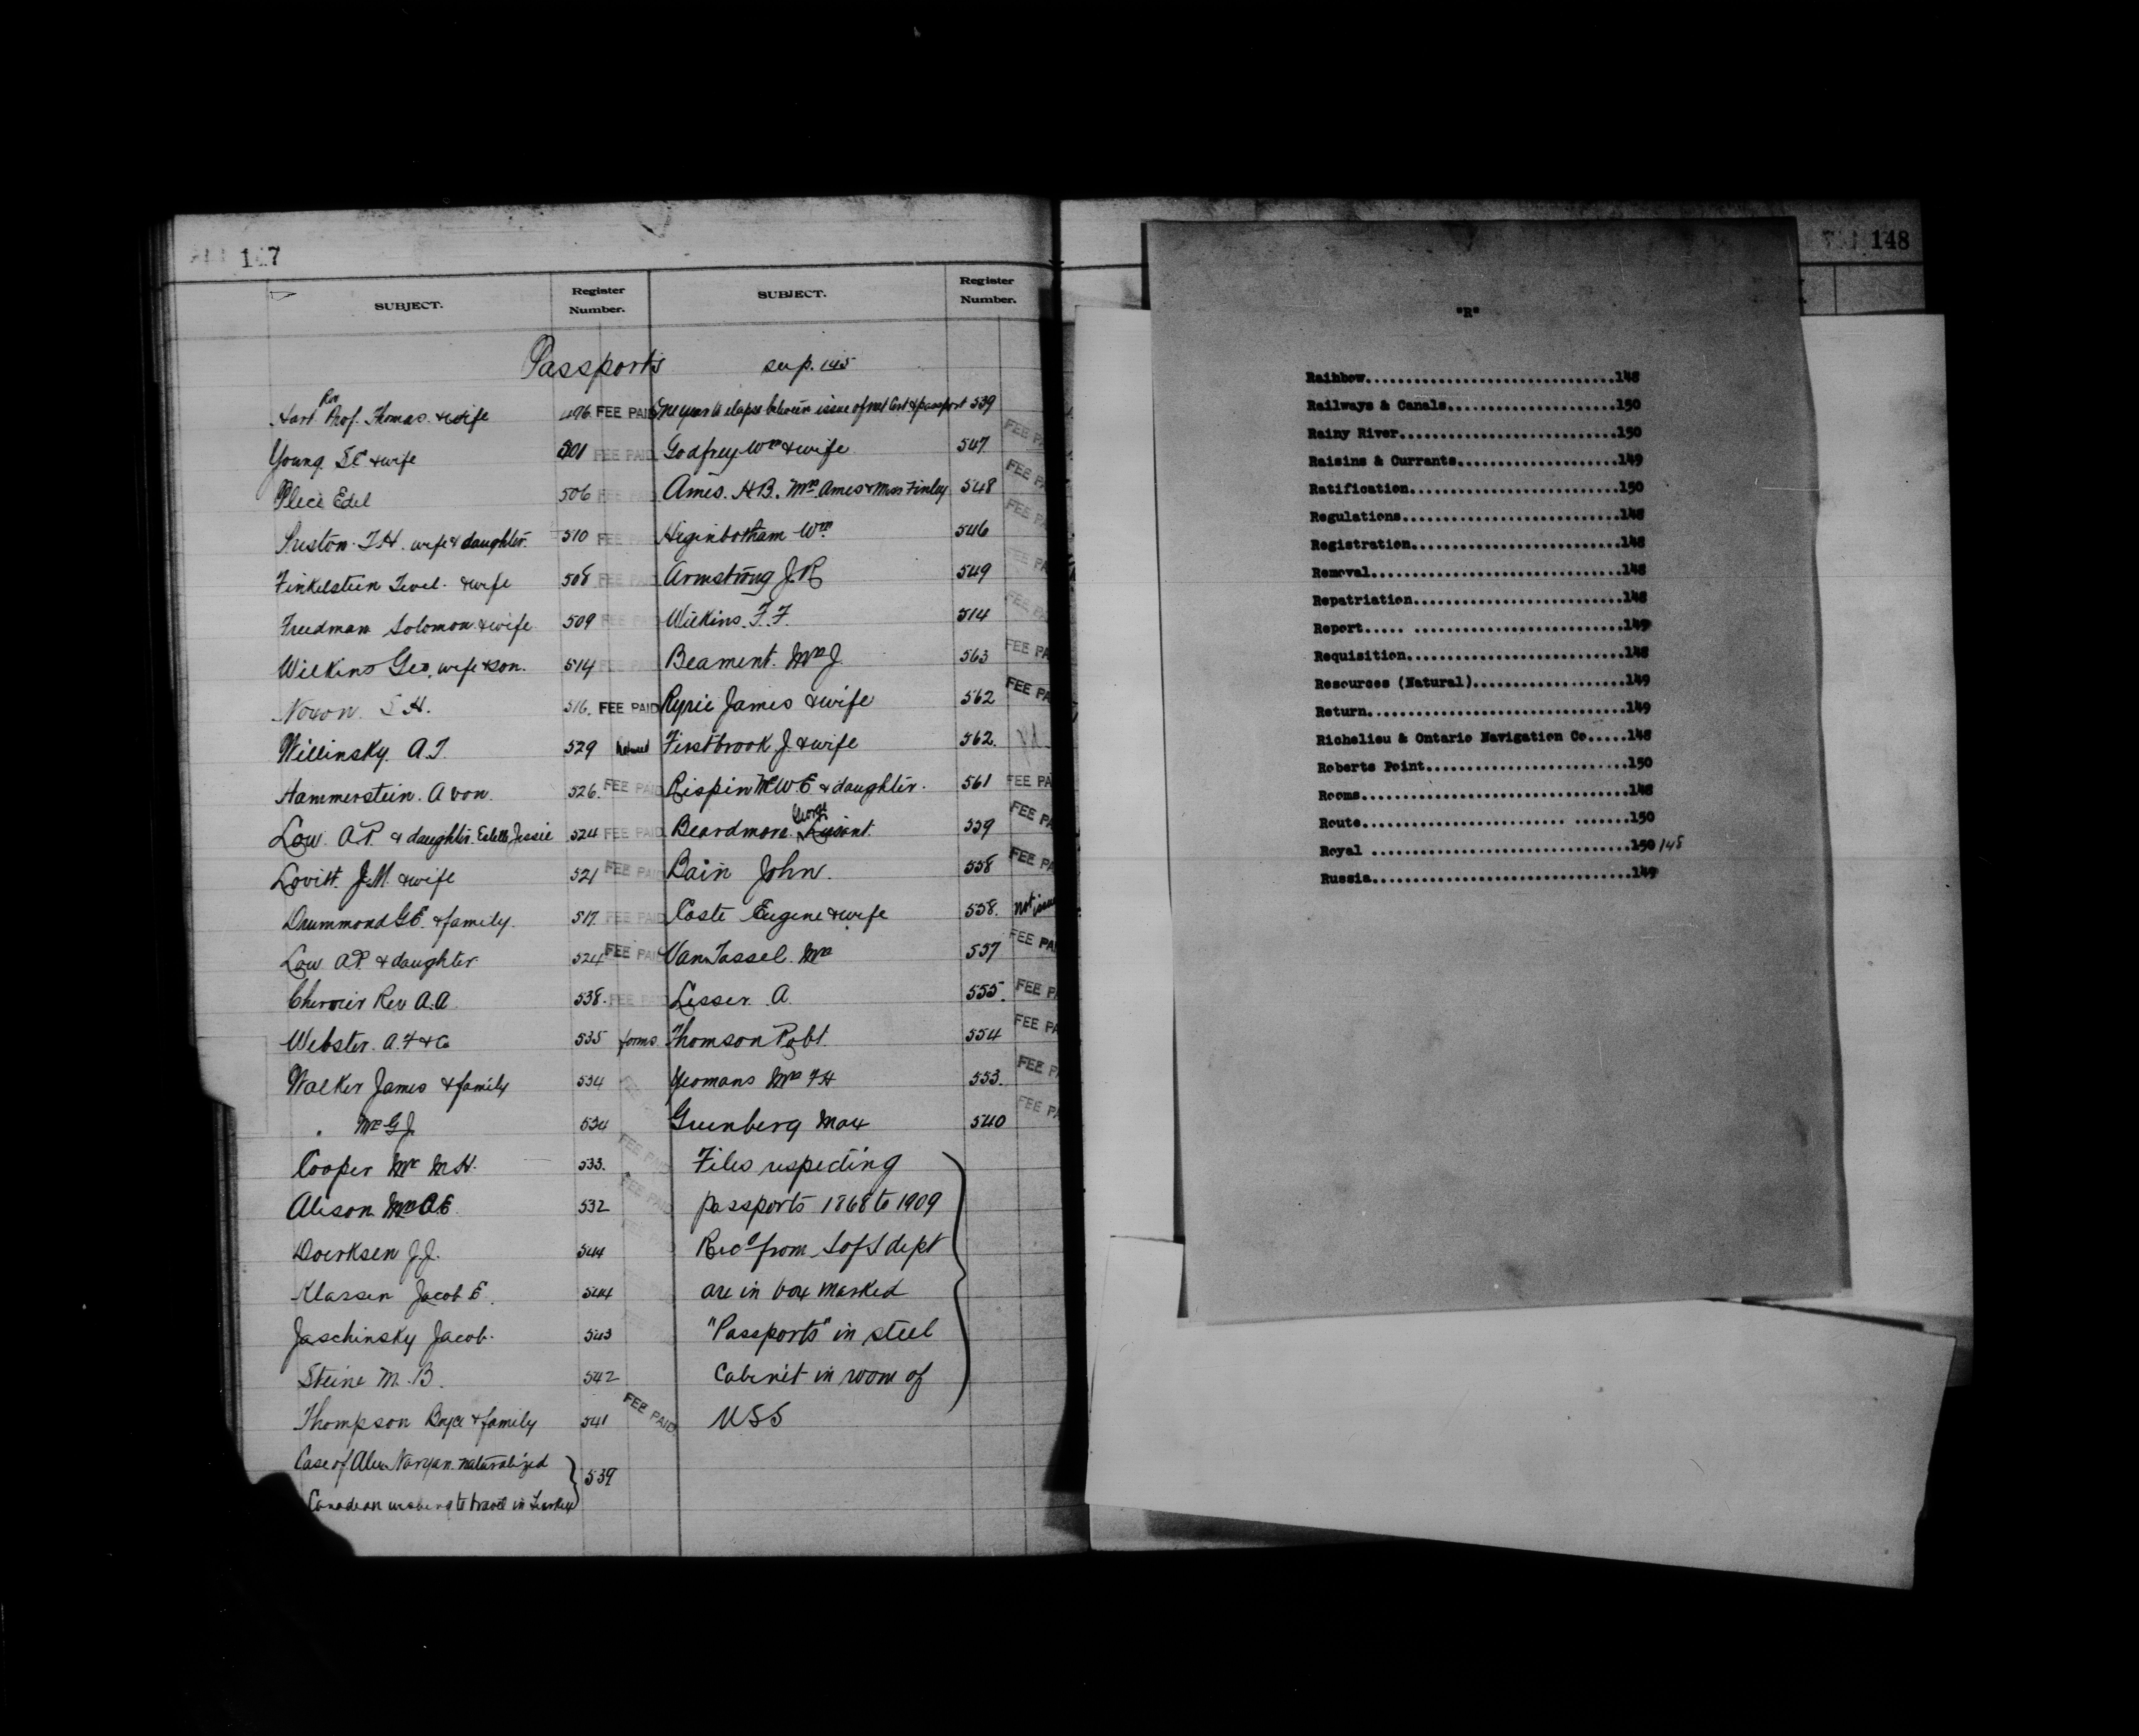 147
SUBJECT. Register Number. SUBJECT. Register Number.
Passports sup. 145
Hart Rev Prof. Thomas & wife 496 FEE PAID
Young & wife 501 FEE PAID
Edel 506 FEE PAID
Preston T.H. wife & daughter 510 FEE PAID
Finkelstein & wife 508 FEE PAID
Freedman Solomon & wife 509 FEE PAID
Wilkins Geo. wife & son. 514 FEE PAID
Noxon H. 516. FEE PAID
Willinsky. A.I. 529
Hammerstein. A von. 526. FEE PAID
Low. A.P. & daughter. Estelle Jessie 524 FEE PAID
Lovitt. J.M. & wife 521 FEE PAID
Drummond G.E. & family. 517. FEE PAID
Low A.P. & daughter 524 FEE PAID
Rev A.A. 538. FEE PAID
Webster. A.F. & Co 535 forms
Walker James & family 534
" Mr G.J. 534
Cooper Mr M.H. 533. FEE PAID
Alison 532 FEE PAID
Doerksen J.J. 544
Klassen Jacob E. 544
Jaschinsky Jacob. 543
Steine M.B. 542
Thompson & family 541 FEE PAID
Case of naturalized
Canadian wishing to travel in Turkey } 539
One year to elapse between issue of nat Cert & passport 539
Godfrey Wm & wife 547 FEE PA
Ames. H.B. Mrs Ames & Miss Finley 548 FEE PA
Higinbotham Wm 546 FEE PA
Armstrong J.R. 549 FEE PA
Wilkins. F.F. 514 FEE PA
Beament. Mrs J. 563 FEE PA
Ryrie James & wife 562 FEE PA
Firstbrook J. & wife 562.
Rispin W.E & daughter. 561 FEE PA
Beardmore George 559 FEE PA
Bain John. 558 FEE PA
Coste Eugene & wife 558. not issue
Van Tassel. Mrs 557 FEE PA
Lesser. A. 555. FEE P
Thomson Robt. 554 FEE PA
Yeomans Mrs F.H 553. FEE P
Greenberg Max 540 FEE PA
Files respecting
passports 1868 to 1909
Recd from S of S dept
are in box marked
"Passports" in steel
Cabinet in room of
USS
148
"R"
Raihbow...............................148
Railways & Canals.....................150
Rainy River...........................150
Raisins & Currants....................149
Ratification..........................150
Regulations...........................148
Registration..........................148
Removal...............................148
Repatriation..........................148
Report..... ..........................149
Requisition...........................148
Resources (Natural)...................149
Return................................149
Richelieu & Ontario Navigation Co.....148
Roberts Point.........................150
Rooms.................................148
Route......................... .......150
Royal ................................150 148
Russia................................149